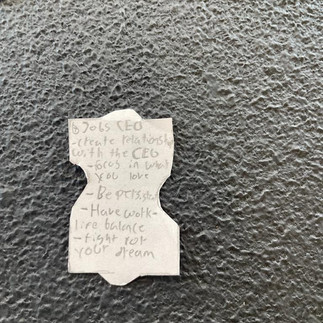 Jobs CEO
-create relationship
with the CEO
-focus in what
you love
-Be persistent
-Have work-
life balance
-fight for
your dream